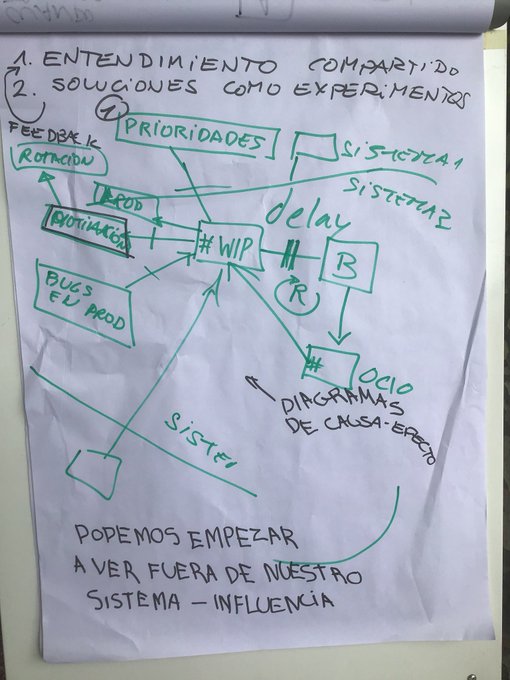 1. ENTENDIMIENTO COMPARTIDO
2. SOLUCIONES COMO EXPERIMENTOS
FEEDBACK
1
PRIORIDADES
ROTACION
SISTEMA 1
SISTEMA 2
PROD
delay
MOTIVACION
#WIP
B
BUGS
EN PROD
R
#
OCIO
DIAGRAMAS
DE CAUSA-EFECTO
SISTE
PODEMOS EMPEZAR
A VER FUERA DE NUESTRO
SISTEMA - INFLUENCIA